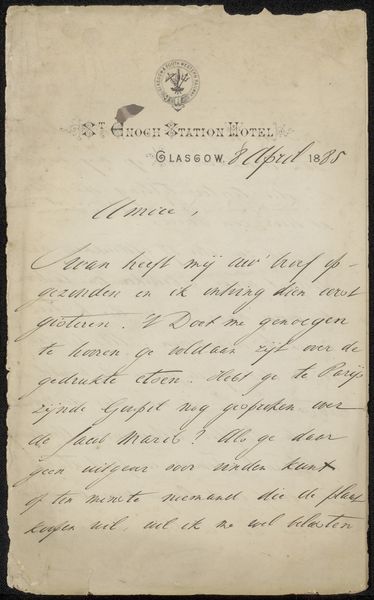 GLASGOW & SOUTH WESTERN RAILWAY
ST ENOCH STATION HOTEL
GLASGOW 8 April 1885
Amice,
Swan heeft mij uw' brief op-
gezonden en ik ontving dien eerst
gisteren. 't Doet me genoegen
te hooren ge voldaan zijt over de
gedrukte etsen. Hebt ge te Parijs
zijnde Goupil nog gesproken over
de Jacob Maris? Als ge daar
geen uitgever voor vinden kunt
of ten minste niemand die de plaat
koopen wil, wil ik me wel belasten